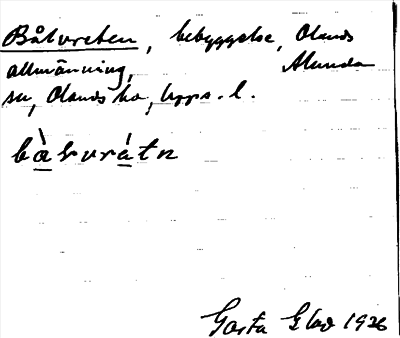 Båtvreten, bebyggelse, Olands
allmänning, Alunda
sn, Olands hd, Upps. l.
bàtvrátn
Gösta Glad 1926